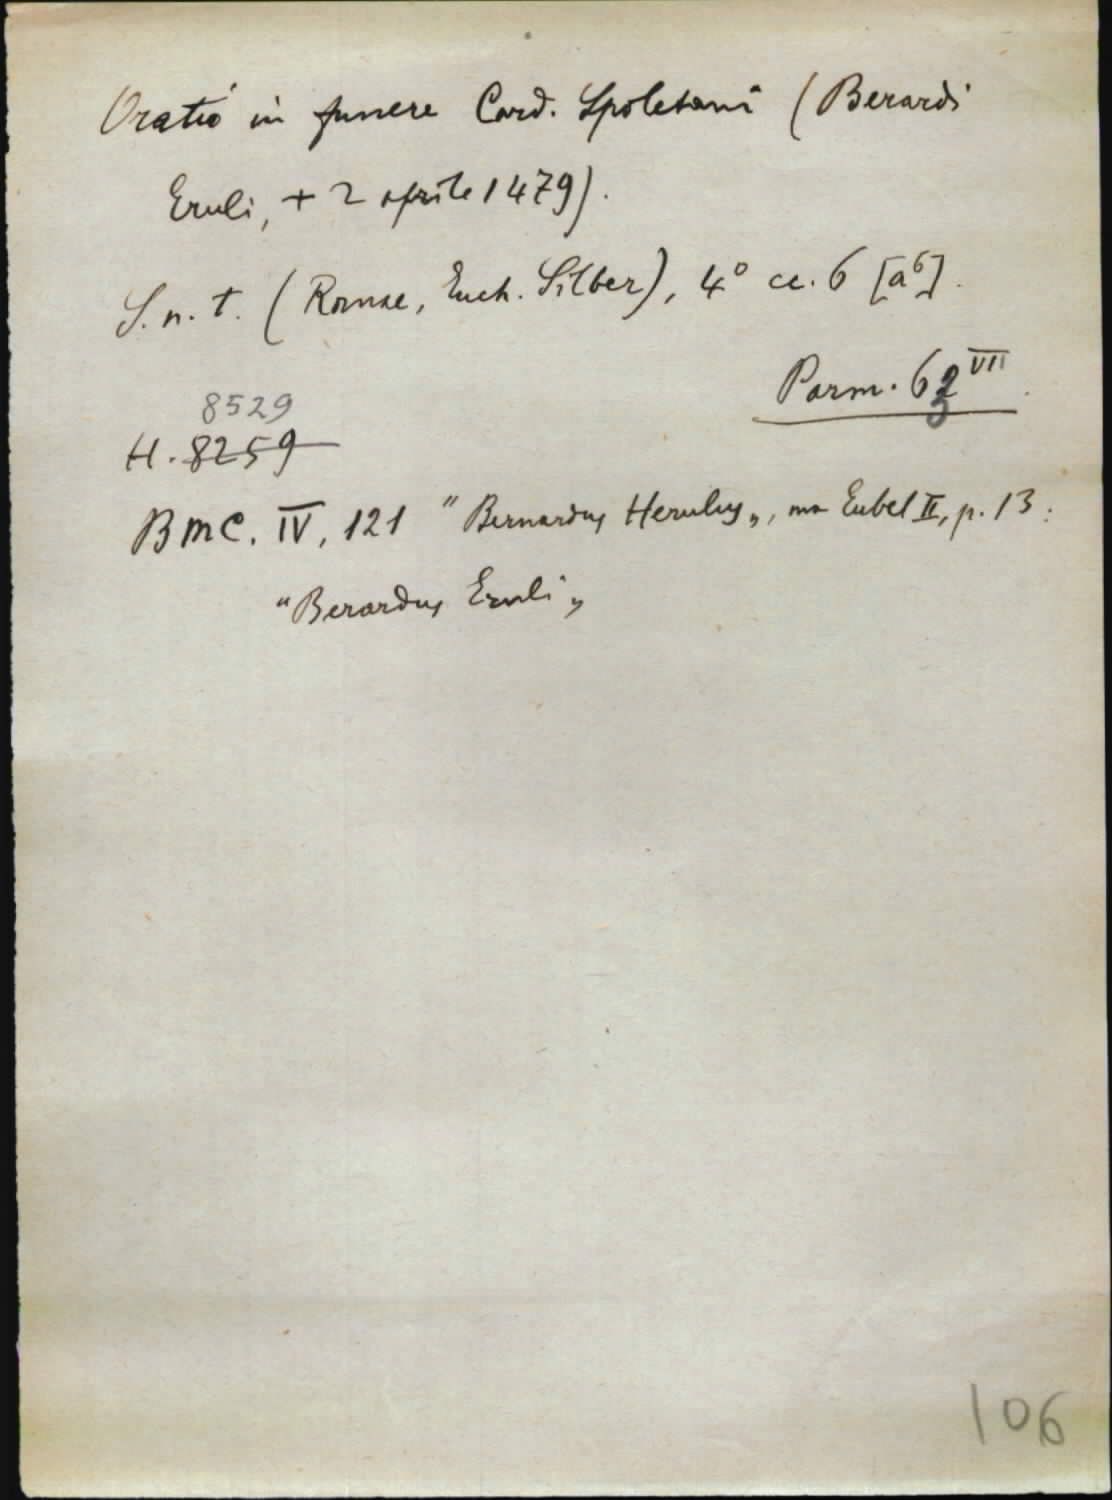 Oratio in funere Card. Spoletani (Berardi
Eruli, + 2 aprile 1479).
S. n. t. (Romae, Euch. Silber), 4° cc. 6 [a⁶].
Parm. 63 VII.
8529
H. 8259
BMC. IV, 121 "Bernardus Herulus„, ma Eubel II, p. 13:
"Berardus Eruli„
106